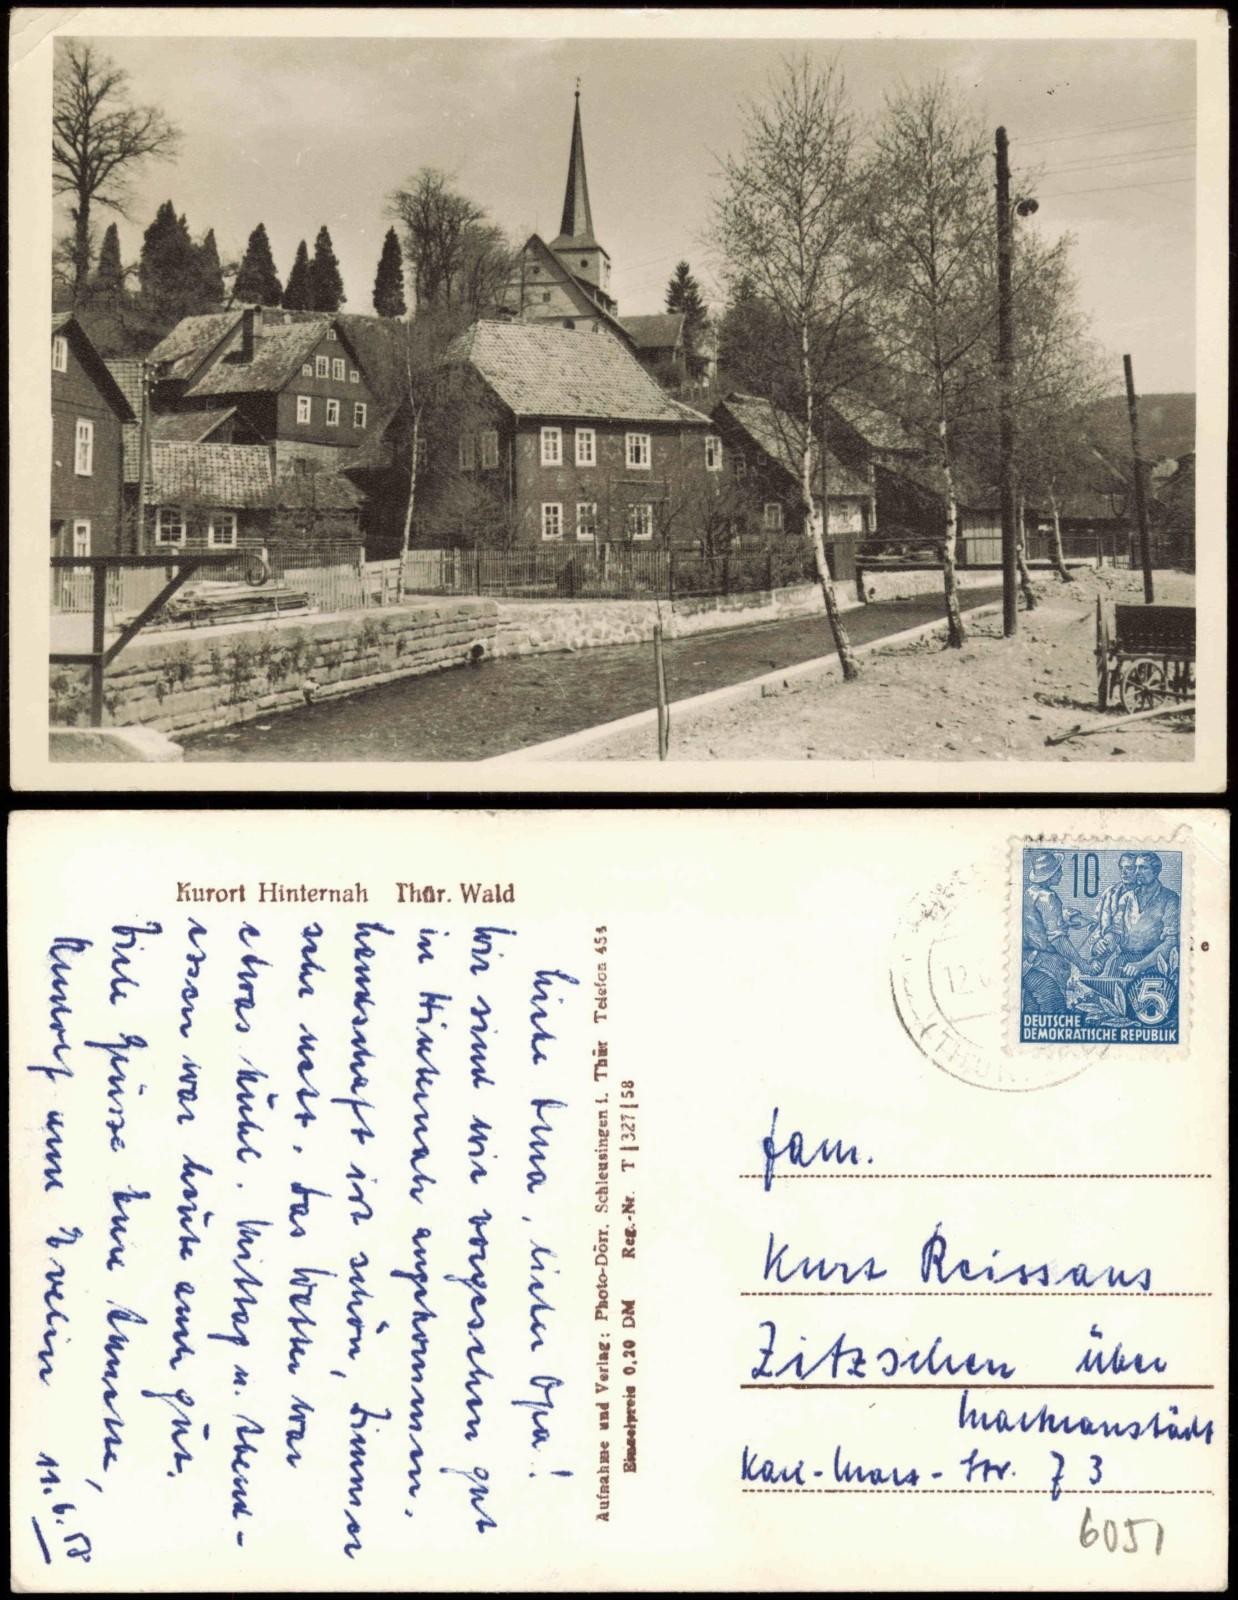 Kurort Hinternah Thür. Wald
Liebe Oma, lieber Opa!
Wir sind wie vorgesehen gut
in Hinternah angekommen.
Landschaft ist schön, Zimmer
sehr nett. Das Wetter war
etwas kühl. Mittag u. Abend-
essen war heute auch gut.
Viele Grüsse Eure Annerose,
Rudolf und Evelin 11.6.58
Aufnahme und Verlag: Photo-Dörr. Schleusingen i. Thür Telefon 454
Einzelpreis 0,20 DM Reg.-Nr. T|327|58
10
5
DEUTSCHE
DEMOKRATISCHE REPUBLIK
12.
(THÜR
Fam.
Kurt Reissaus
Zitzschen über
Markranstädt
Karl-Marx-Str. 73
6051